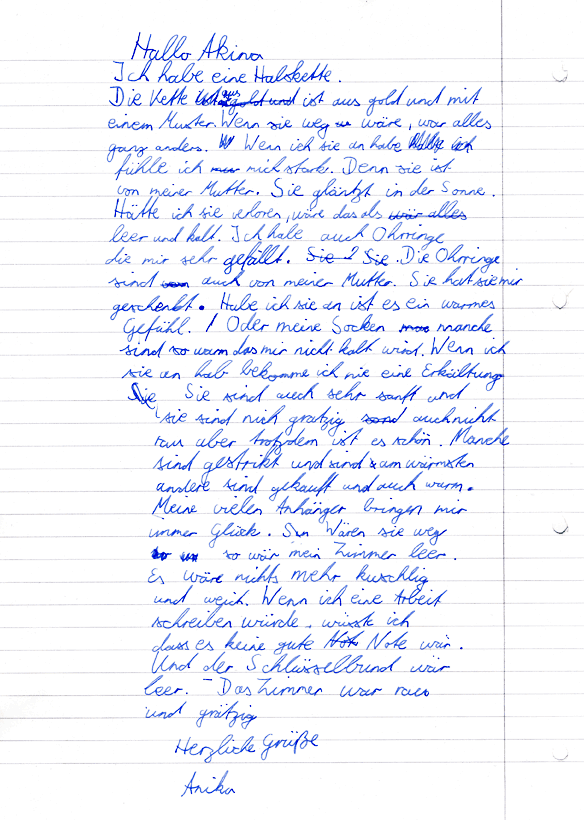 Hallo Akina
Ich habe eine Halskette.
Die Kette ist aus gold und mit
einem Muster. Wenn sie weg wäre, war alles
ganz anders. Wenn ich sie an habe
fühle ich mich stark. Denn sie ist
von meiner Mutter. Sie gläntzt in der Sonne.
Hätte ich sie verloren, wäre das als
leer und kalt. Ich habe auch Ohrringe
die mir sehr gefällt. Die Ohrringe
sind auch von meiner Mutter. Sie hat sie mir
geschenkt. Habe ich sie an ist es ein warmes
Gefühl. Oder meine Socken manche
sind so warm das mir nicht kalt wird. Wenn ich
sie an hab bekomme ich nie eine Erkältung
Sie sind auch sehr sanft und
sie sind nich gratzig auch nicht
rau aber trotzdem ist es schön. Manche
sind gestrikt und sind am wärmsten
andere sind gekauft und auch warm.
Meine vielen Anhänger bringen mir
immer Glück. Wären sie weg
so wär mein Zimmer leer.
Es wäre nichts mehr kuschlig
und weich. Wenn ich eine Arbeit
schreiben würde, wüsste ich
dass es keine gute Note wär.
Und der Schlüsselbund wär
leer. - Das Zimmer war rau
und grätzig
Herzliche Grüße
Anika